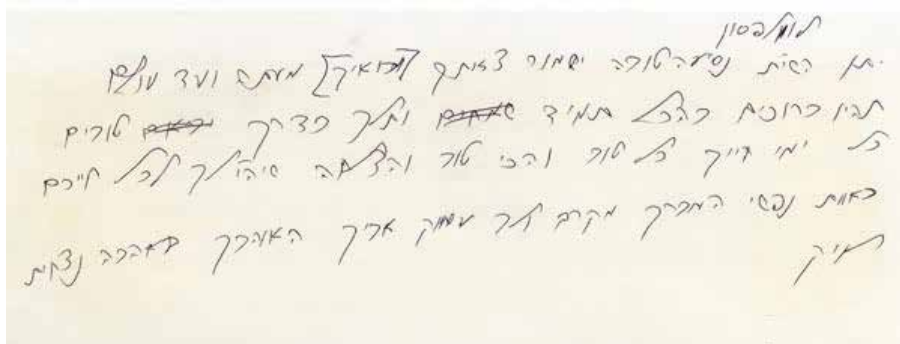 יתן השי"ת נסיעה טובה ישמור צאתך [ובואיך] מעתה ועד עולם
תהיו ברוכים בהכל תמיד שמחים ותלך בדרך טובים
כל ימי חייך כל טוב והכי טוב והצלחה שיהי' לך לכל חייכם
כאוות נפשי המברך מקרב לב עמוק אביך האוהבך באהבה נצחית